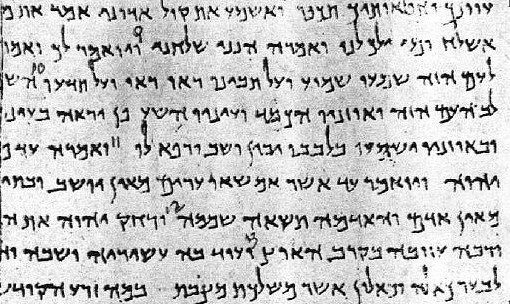 עוונך וחטאותיך תכפר ואשמע את קול אדוני אמר את מ
אשלח ומי ילך לנו ואמרה הנני שלחני 9 ויואמר לך ואמר
לעם הזה שמעו שמוע ועל תבינו ראו ראו ועל תדעו 10 השמ
לב העם הזה ואוזניו הכבד ועיניו השע פן יראה בעיני
ובאוזניו ישמעו בלבבו יבין ושב ורפא לו 11 ואמרה עד מ
יהוה ויואמר עד אשר אם שאו ערים מאין יושב ובתי
מאין אדם והאדמה תשאה שממה 12 ורחק יהוה את ה
ורבה עזובה בקרב הארץ 13 ועוד בה עשיריה ושבה וה
לבער כאלה וכאלון אשר משלכת מצבת במה זרע הקודש